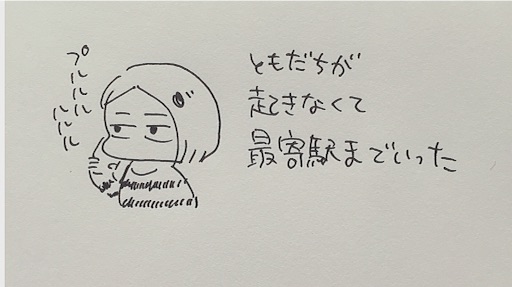 プルルルルルル
ともだちが
起きなくて
最寄駅までいった